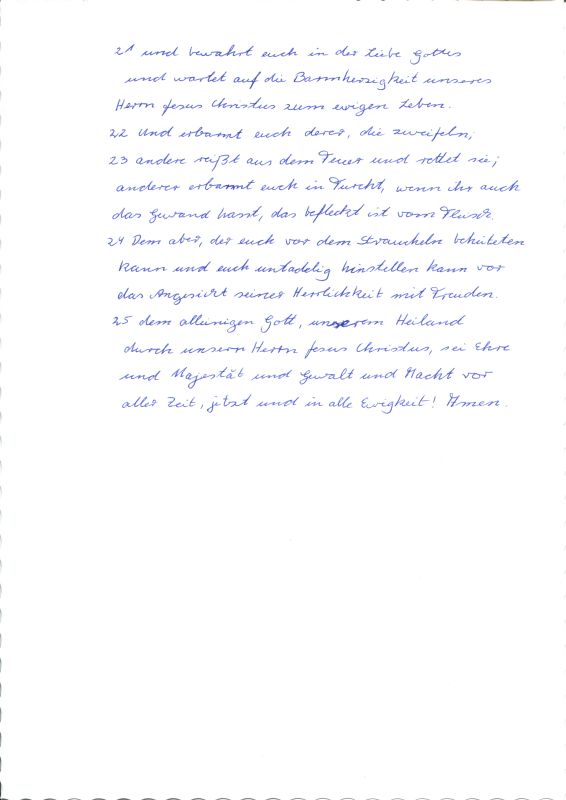 21 und bewahrt euch in der Liebe Gottes
und wartet auf die Barmherzigkeit unseres
Herrn Jesus Christus zum ewigen Leben.
22 Und erbarmt euch derer, die zweifeln;
23 andere reißt aus dem Feuer und rettet sie;
anderer erbarmt euch in Furcht, wenn ihr auch
das Gewand hasst, das befleckt ist vom Fleisch.
24 Dem aber, der euch vor dem Straucheln behüteten
kann und euch untadelig hinstellen kann vor
das Angesicht seiner Herrlichkeit mit Freuden.
25 dem alleinigen Gott, unserem Heiland
durch unsern Herrn Jesus Christus, sei Ehre
und Majestät und Gewalt und Macht vor
aller Zeit, jetzt und in alle Ewigkeit! Amen.